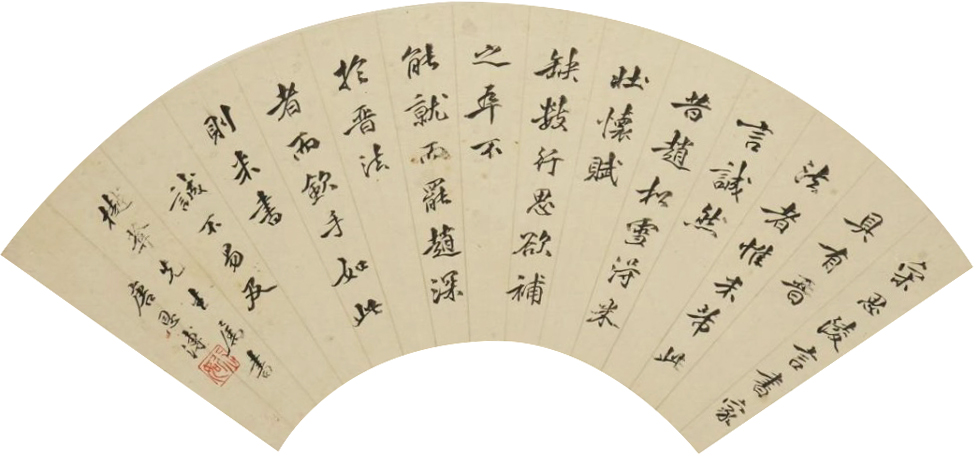 宋思陵言書家
具有晉
法者惟未芾此
言誠然
昔趙松雪淂米
壯懷賦
缺數行思欲補
之卒不
能就而罷趙深
於晉法
者而歛手如此
則米書
誠不易及
先生屬書
唐恩溥